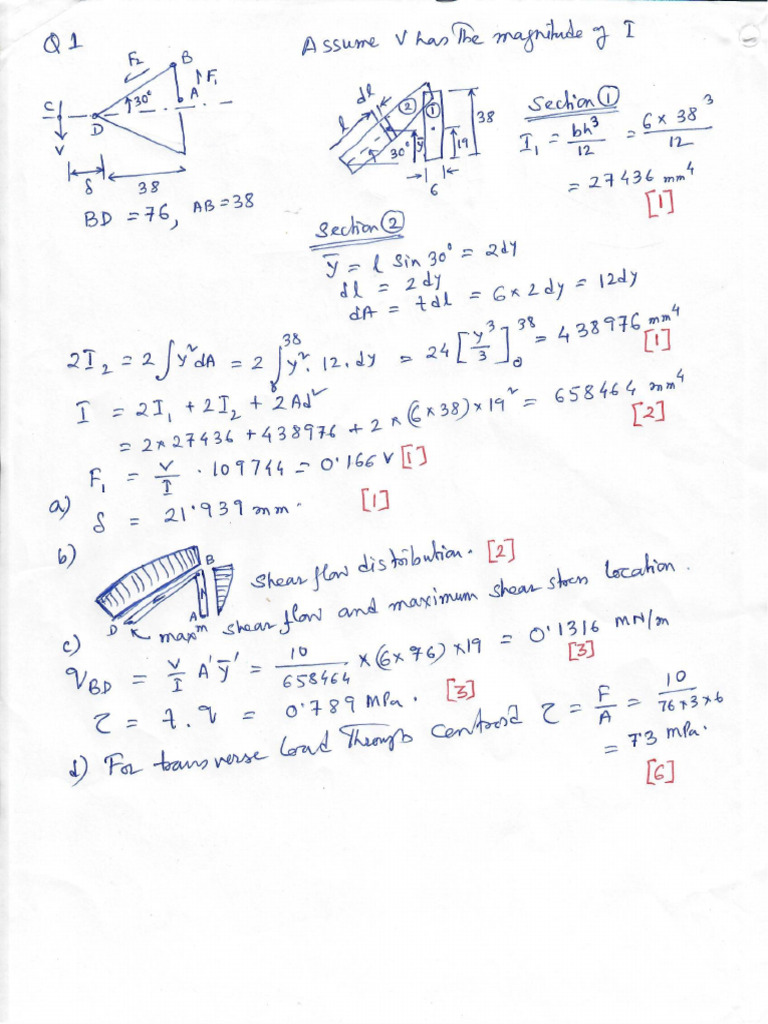 Q1
Assume V has The magnitude of I
F₂
B
F₁
A
30°
C
D
V
δ
38
BD = 76, AB = 38
dl
l
②
①
38
ȳ
19
30°
6
Section ①
I₁ = bh³/12 = 6 × 38³/12
= 27436 mm⁴
[1]
Section ②
ȳ = l Sin 30° = 2dy
dl = 2dy
dA = tdl = 6 × 2dy = 12dy
2I₂ = 2∫y²dA = 2∫₀³⁸ y². 12. dy = 24 [y³/3]₀³⁸ = 438976 mm⁴
[1]
I = 2I₁ + 2I₂ + 2Ad²
= 2 × 27436 + 438976 + 2 × (6 × 38) × 19² = 658464 mm⁴
[2]
F₁ = V/I . 109744 = 0.166 V [1]
a) δ = 21.939 mm. [1]
b)
B
D
A
Shear flow distribution. [2]
maxᵐ shear flow and maximum shear stress location.
c)
q_BD = V/I A' ȳ' = 10/658464 × (6 × 76) × 19 = 0.1316 MN/m
[3]
τ = 7. q = 0.789 MPa. [3]
d) For transverse load Through centroid τ = F/A = 10/76×3×6
= 7.3 MPa.
[6]